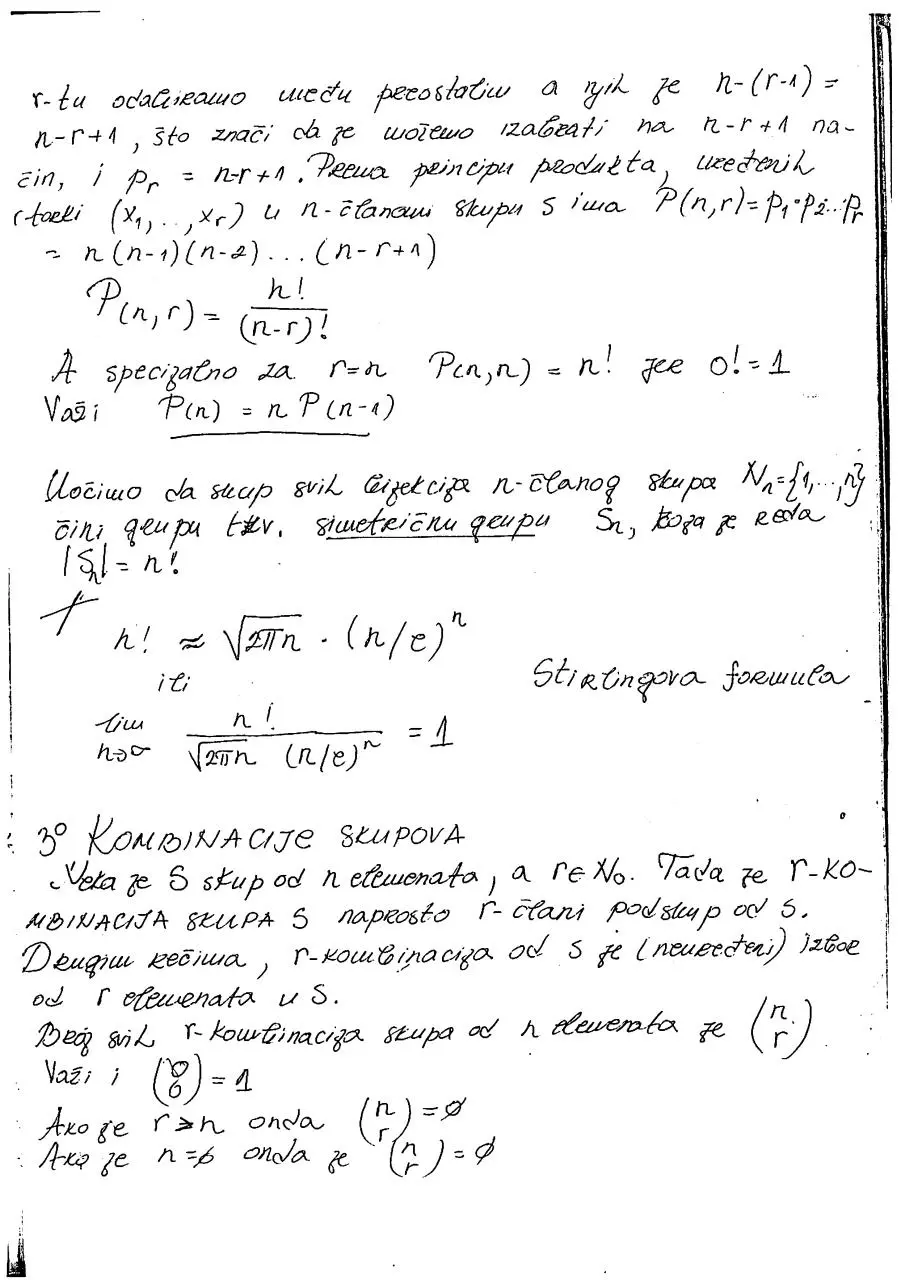 r-tu odabiramo među preostalim a njih je n-(r-1) =
n-r+1, što znači da je možemo izabrati na n-r+1 na-
čin, i pᵣ = n-r+1. Prema principu produkta, uređenih
r-torki (x₁,..,xᵣ) u n-članom skupu S ima P(n,r)=p₁·p₂...pᵣ
= n(n-1)(n-2)...(n-r+1)
P(n,r) = n!/(n-r)!
A specijalno za r=n P(n,n) = n! jer 0!=1
Važi P(n) = n P(n-1)
Uočimo da skup svih bijekcija n-članog skupa Nₙ={1,..,n}
čini grupu tzv. simetričnu grupu Sₙ, koja je reda
|Sₙ| = n!
n! ≈ √2πn · (n/e)ⁿ
ili Stirlingova formula
lim n→∞ n!/(√2πn (n/e)ⁿ) = 1
3° KOMBINACIJE SKUPOVA
Neka je S skup od n elemenata, a r∈N₀. Tada je r-KO-
MBINACIJA SKUPA S naprosto r-člani podskup od S.
Drugim rečima, r-kombinacija od S je (neuređeni) izbor
od r elemenata u S.
Broj svih r-kombinacija skupa od n elemenata je (n r)
Važi i (0 0) = 1
Ako je r>n onda (n r) = 0
Ako je n=0 onda je (n r) = 0